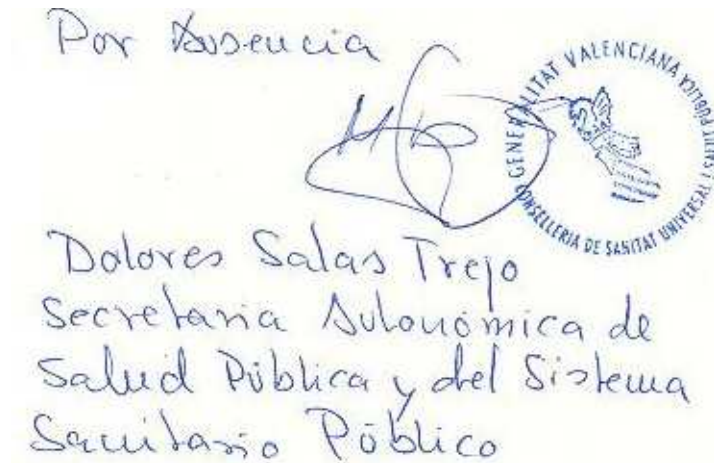 Por Ausencia
GENERALITAT VALENCIANA
CONSELLERIA DE SANITAT UNIVERSAL I SALUT PÚBLICA
Dolores Salas Trejo
Secretaria Autonómica de
Salud Pública y del Sistema
Sanitario Público